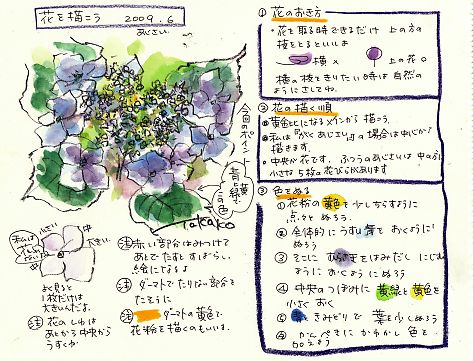 花を描こう 2009. 6
あじさい
今回のポイント
黄色
黄緑
青
の色
takako
小さい
中
大きい
中
私は
花びら
ないよ
よく見ると
1枚だけは
大きいんだよ。
注 花のしんは
あとから中央から
うすくか
注 赤い部分はみつけて
あとでたすとすばらしい
絵になるよ
注 ダーマトでたりない部分を
たそうに
注 ダーマトの黄色で
花粉を描くのもいい。
① 花のおき方
・花を取る時できるだけ 上の方の
枝をとるといいよ
横 × 上の花○
横の枝をきりたい時は自然の
ようにさしてね。
② 花の描く順
●黄金ヒになるメインから描こう。
●私は『がくあじさい』の場合は中心から
描きます。
●中央が花です。ふつうのあじさいは中のぶ
小さな5枚の花びらがあります
③ 色をぬる
①花粉の黄色を少しちらすように
点々とぬろう。
②全体的にうすい青でおくように
ぬろう
③そこにむらさきをはみだしにじむ
ようにおくようにぬろう
④中央のつぼみに黄緑と黄色を
小さくおく
⑤きみどりで葉を少しぬろう
⑥かんぺきにかわかし色を
加えよう